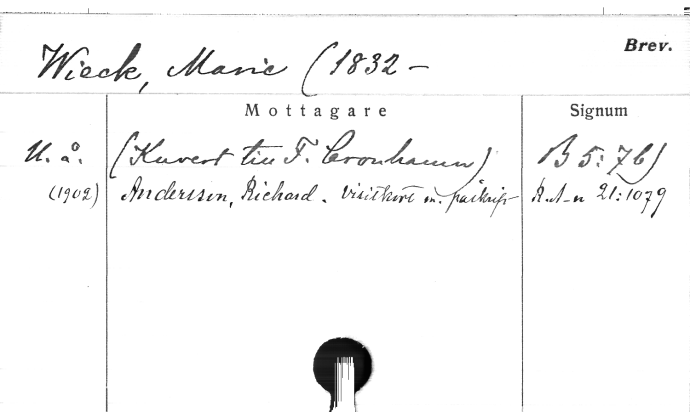 Brev.
Wieck, Marie (1832 –
Mottagare Signum
U. å. (Kuvert till F. Cronhamn) B 5:7b)
(1902) Andersson, Richard. Visitkort m. påskrift R.A-n 21:1079